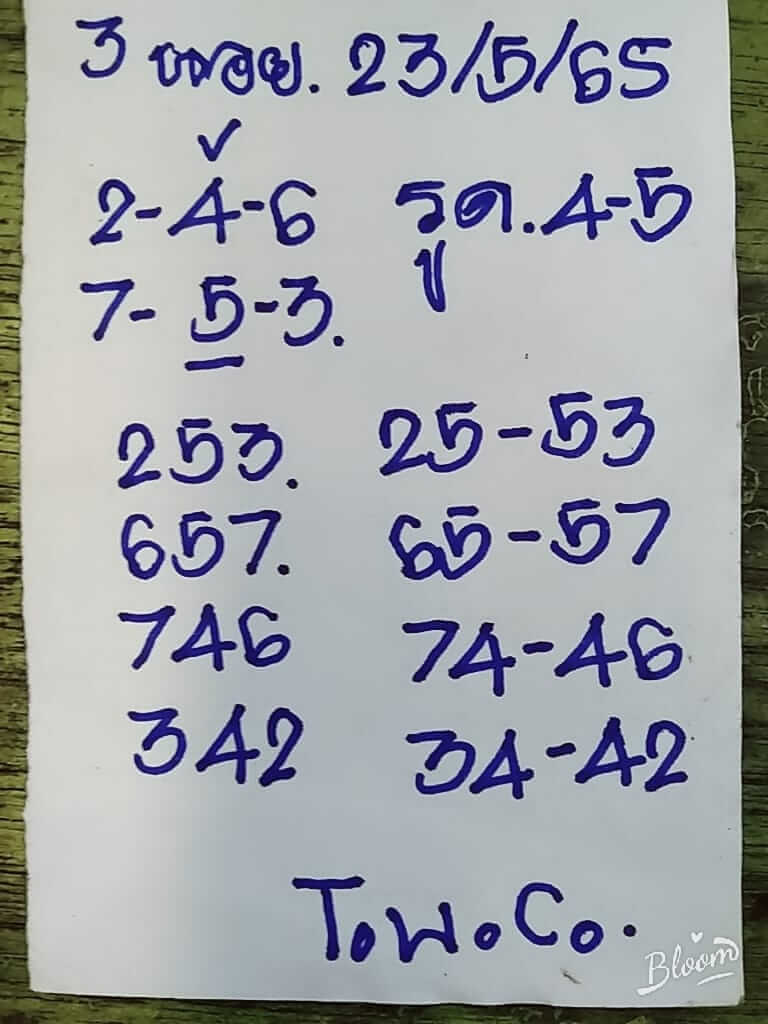 3 หนอย. 23/5/65
2-4-6 รูด. 4-5
7-5-3.
253. 25-53
657. 65-57
746 74-46
342 34-42
T.W.Co.
Bloom